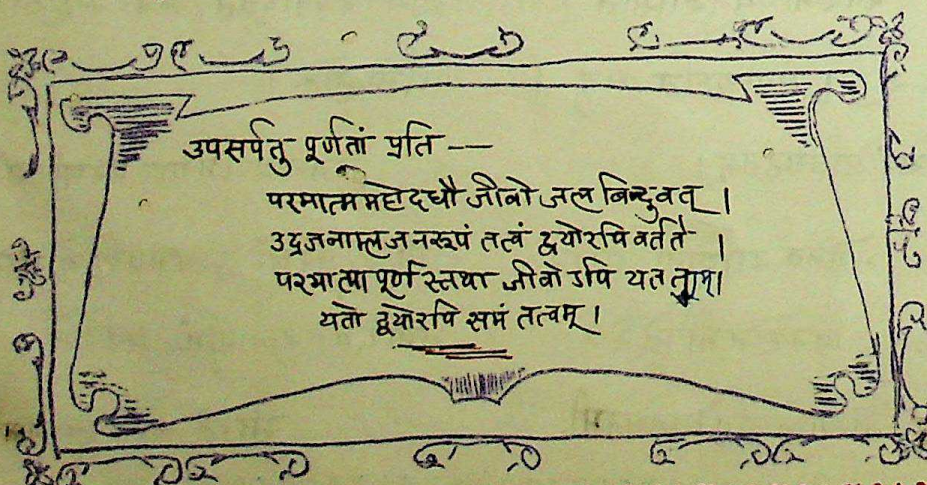 उपसर्पतु पूर्णतां प्रति —
परमात्ममहोदधौ जीवो जल बिन्दुवत् ।
उद्रजनाम्लजनरूपं तत्वं द्वयोरपि वर्तते ।
परमात्मा पूर्ण स्तथा जीवो ऽपि
यतो द्वयोरपि समं तत्वम् ।